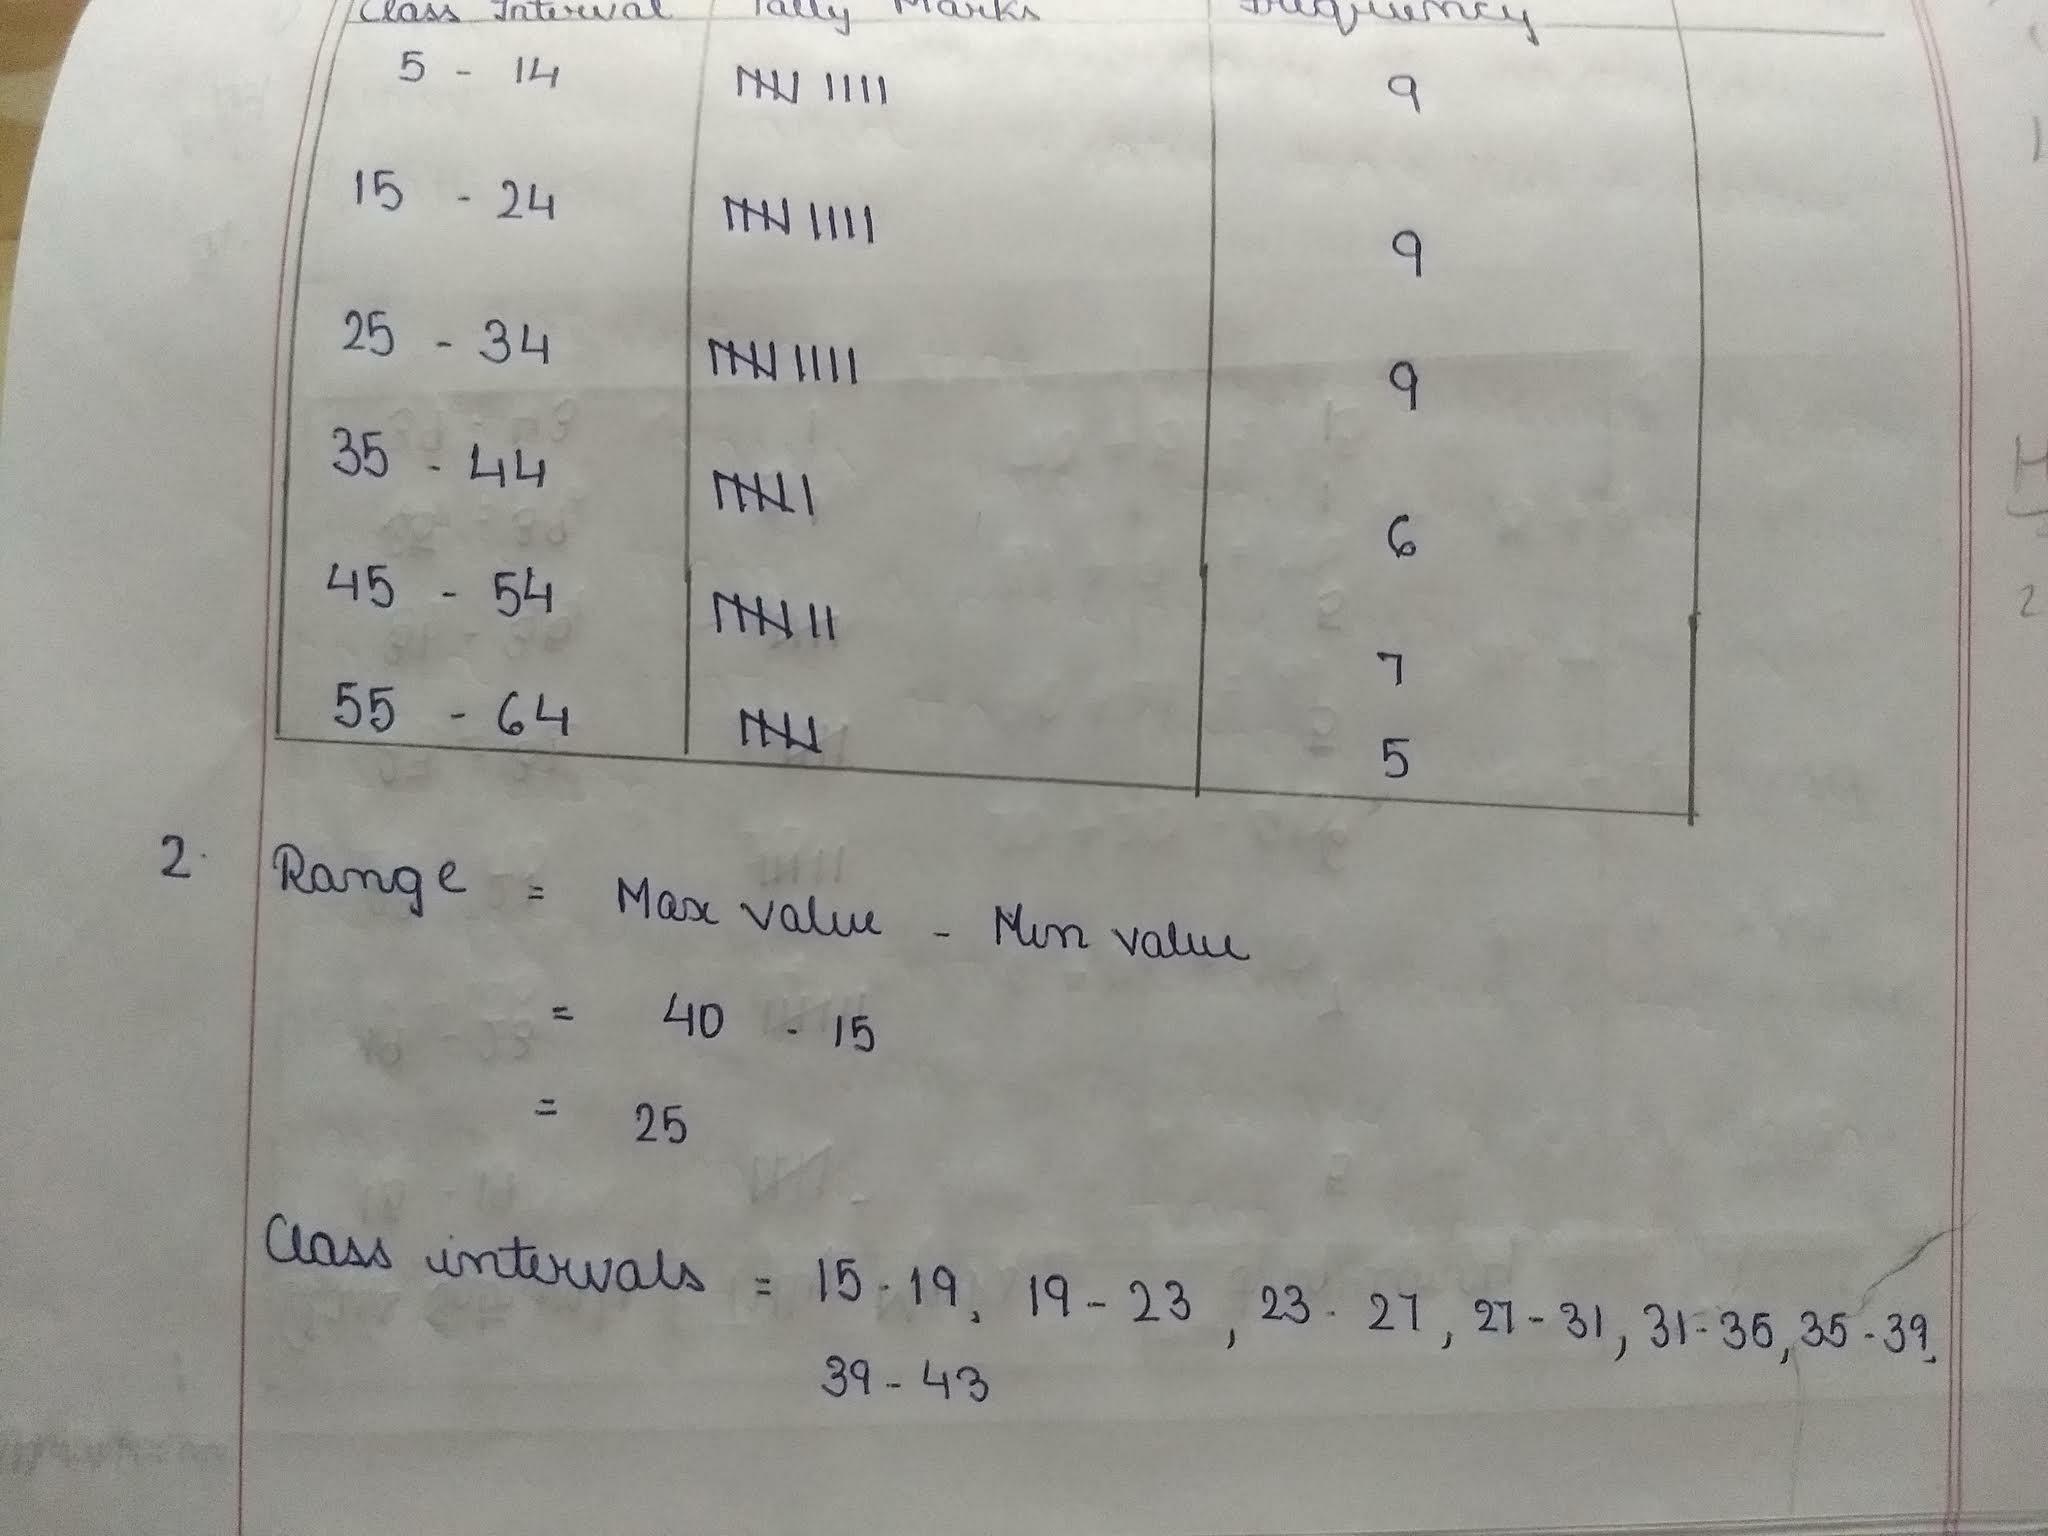 Class Interval Tally Marks Frequency
5 - 14 𝍸 |||| 9
15 - 24 𝍸 |||| 9
25 - 34 𝍸 |||| 9
35 - 44 𝍸 | 6
45 - 54 𝍸 || 7
55 - 64 𝍸 5
2. Range = Max value - Min value
= 40 - 15
= 25
Class intervals = 15-19, 19-23, 23-27, 27-31, 31-35, 35-39,
39-43